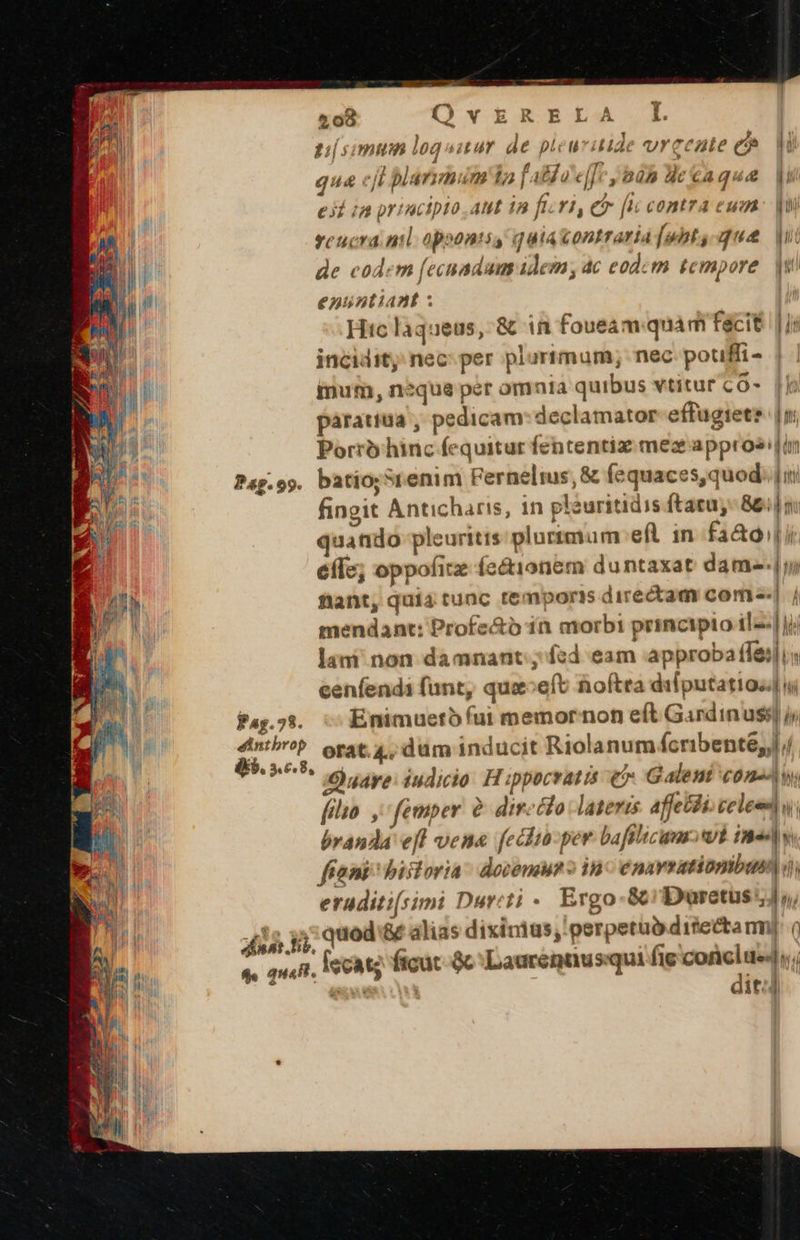 208 QVERELA I.
tissimum loquitur de pleuritide vrgente &
quæ est plurimùm in facto esse, non de ea quæ
est in principio aut in fieri, & sic contra eum
reuera nil opponis, quia contraria sunt, quæ
de eodem secundum idem, ac eodem tempore
enuntiant :
Hic laqueus, & in foueam quàm fecit
incidit, nec per plurimum, nec potissi-
mum, neque per omnia quibus vtitur cō-
paratiua, pedicam declamator effugiet:
Porrò hinc sequitur sententiæ meæ appro-
Pag.99. batio; Etenim Fernelius, & sequaces, quod
fingit Anticharis, in pleuritidis statu, &
quando pleuritis plurimum est in facto
esse; oppositæ sectionem duntaxat dam-
nant, quia tunc temporis directam com-
mendant: Profectò in morbi principio il-
lam non damnant, sed eam approbasse
censendi sunt, quæ est nostra disputatio.
Pag.98. Enimuerò sui memor non est Gardinus
Anthrop orat. 4. dum inducit Riolanum scribentē,
lib. 3.c.8. Quare iudicio Hippocratis & Galeni con-
silio, semper è directo lateris affecti cele-
branda est venæ sectio per basilicam vt in-
signi historia docemur in enarrationibus
eruditissimi Dureti. Ergo & Duretus,
quod & alias diximus, perpetuò directam
secat, sicut & Laurentius qui sic conclu-
dit